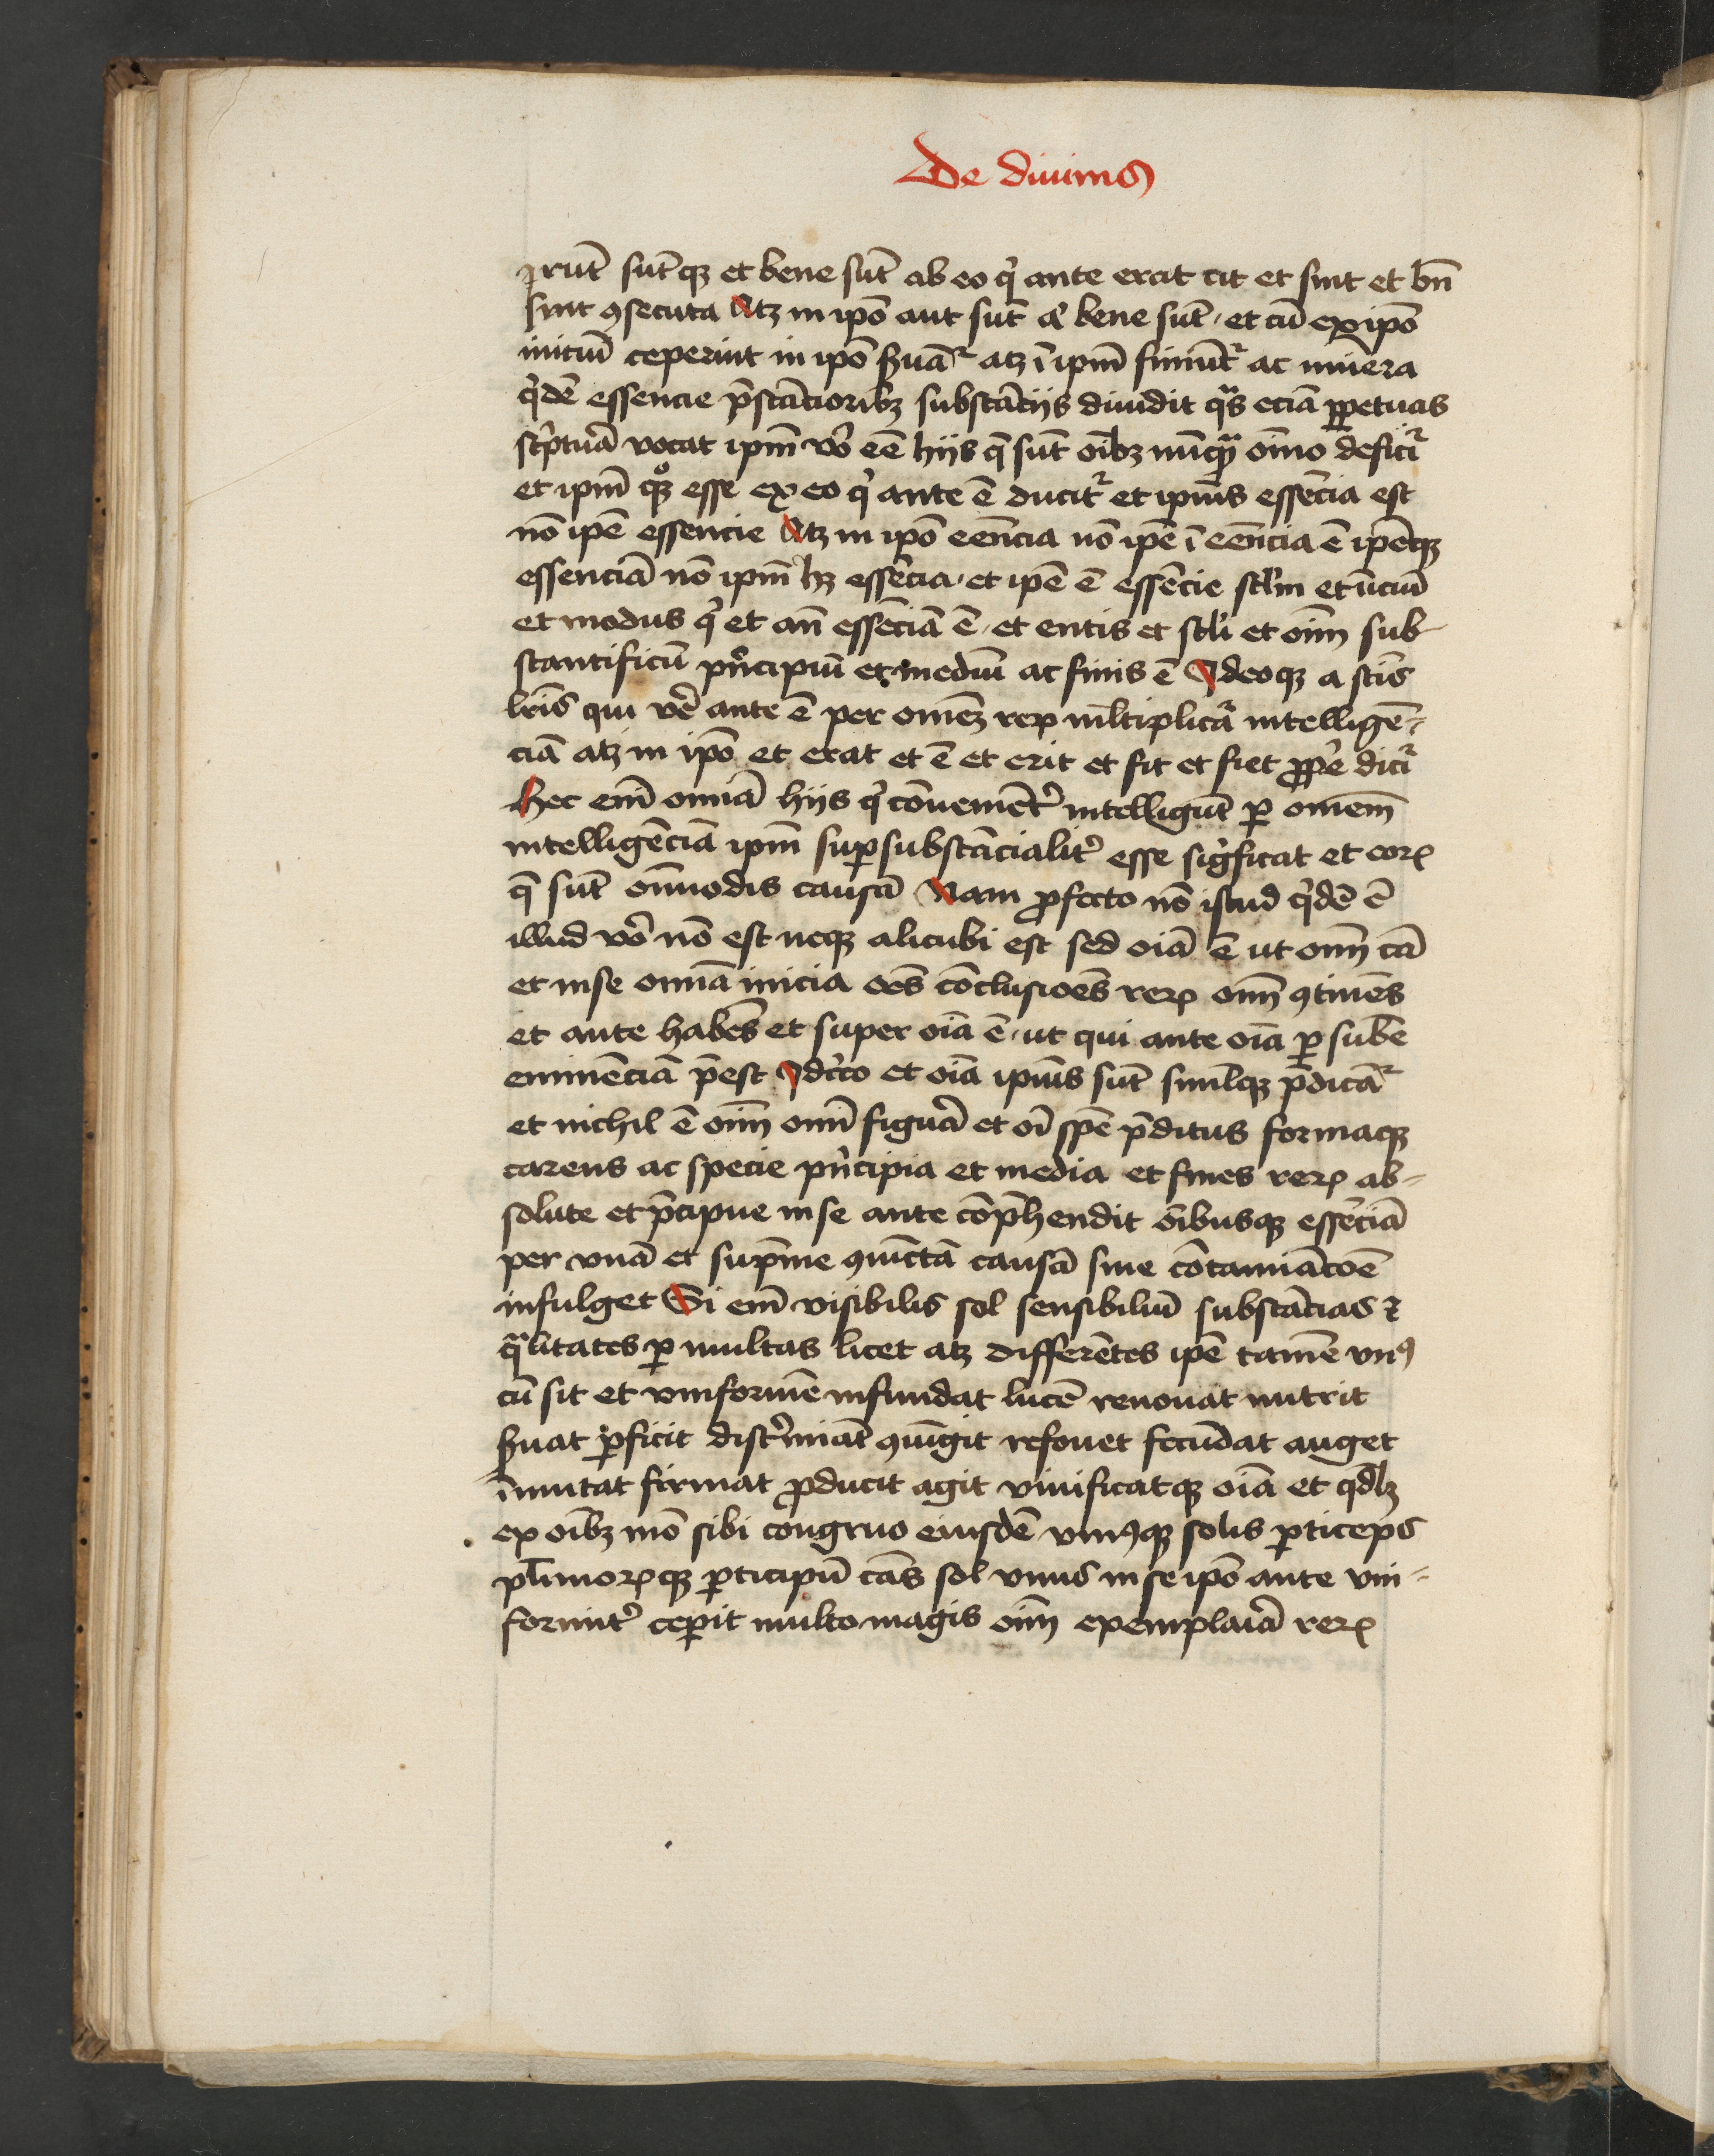 De diuinis
rūt sūtqꝫ et bene sūt ab eo qͥ ante erat cit et sint et bn̄
sint ꝯsecuta Atꝫ in ip̄o aut sūt & bene sūt · et cū ex ip̄o
iniciū ceperint in ip̄o ẜuāͬ atꝫ ī ip̄m finiūtͬ ac miuera
qͥdē essencie p̄stācioribꝫ substācijs diuidit qᵃs eciā ꝑpetuas
scͥptuͣ vocat ip̄m vō eē hijs q̄ sūt oībꝫ nūqᵃꝫ oīno deficiͬ
et ip̄m qꝫᵒ esse ex eo qͥ ante ē ducitͬ et ipīus essēcia est
nō ip̄e essencie Atꝫ in ip̄o eēncia nō ip̄e ī eēncia ē ip̄eqꝫ
essenciā nō ip̄m hꝫ essēcia · et ip̄e ē essēcie scl̄m et īiciū
et modus qͥ et an̄ essēciā ē · et entis et scl̄i et oīm sub
stantificū pͥncipiū et mediū ac finis ē Ideoqꝫ a scīs
lr̄is qui vē ante ē per omēꝫ reꝝ ml̄tiplicͣ intelligē-
ciā atꝫ in ip̄o et erat et ē et erit et fit et fiet ꝓpͥe diciͬ
Hec em̄ omīa hijs qͥ cōuenient᷑ intelligūt ꝑ omem̄
intelligēciā ip̄m suꝑsubstācialit᷑ esse sigͥficat et eoꝝ
q̄ sūt oīmodis causā Nam ꝓfecto nō istud qͥdē ē
illud vō nō est neqꝫ alicubi est sed oīa ē ut oīm cā
et in se omīa inicia oēs cōclusioēs reꝝ oīm ꝯtinēs
et ante habēs et super oīa ē · ut qui ante oīa ꝑ sub̄e
eminēciā p̄est Idcͥco et oīa ipīus sūt siml̄qꝫ p̄dicāͬ
et nichil ē oīm omī figuͣ et oī spē p̄ditus formaqꝫ
carens ac specie pͥncipia et media et fines reꝝ ab-
solute et p̄cipue in se ante cōp̄hendit oībusqꝫ essēciā
per vnā et sup̄me ꝯiūctā causā sine cōtamīacōe
infulget Si em̄ visibilis sol sensibiliū substācias ⁊
qᵃlitates ꝑ multas licet atꝫ differētes ip̄e tamē vnꝰ
cū sit et vniformē infundat lucē renouat nutrit
ẜuat ꝑficit discͥmīat ꝯiūgit refouet fecūdat auget
īmutat firmat ꝓducit agit viuificatqꝫ oīa et qdl̄ꝫ
ex oībꝫ mō sibi congruo eiusdē vniꝰqꝫ solis ꝑticeps
pl̄imoꝝqꝫ ꝑticipū cās sol vnus in se ip̄o ante vni-
formit᷑ cepit multo magis oīm exemplaͥa reꝝ